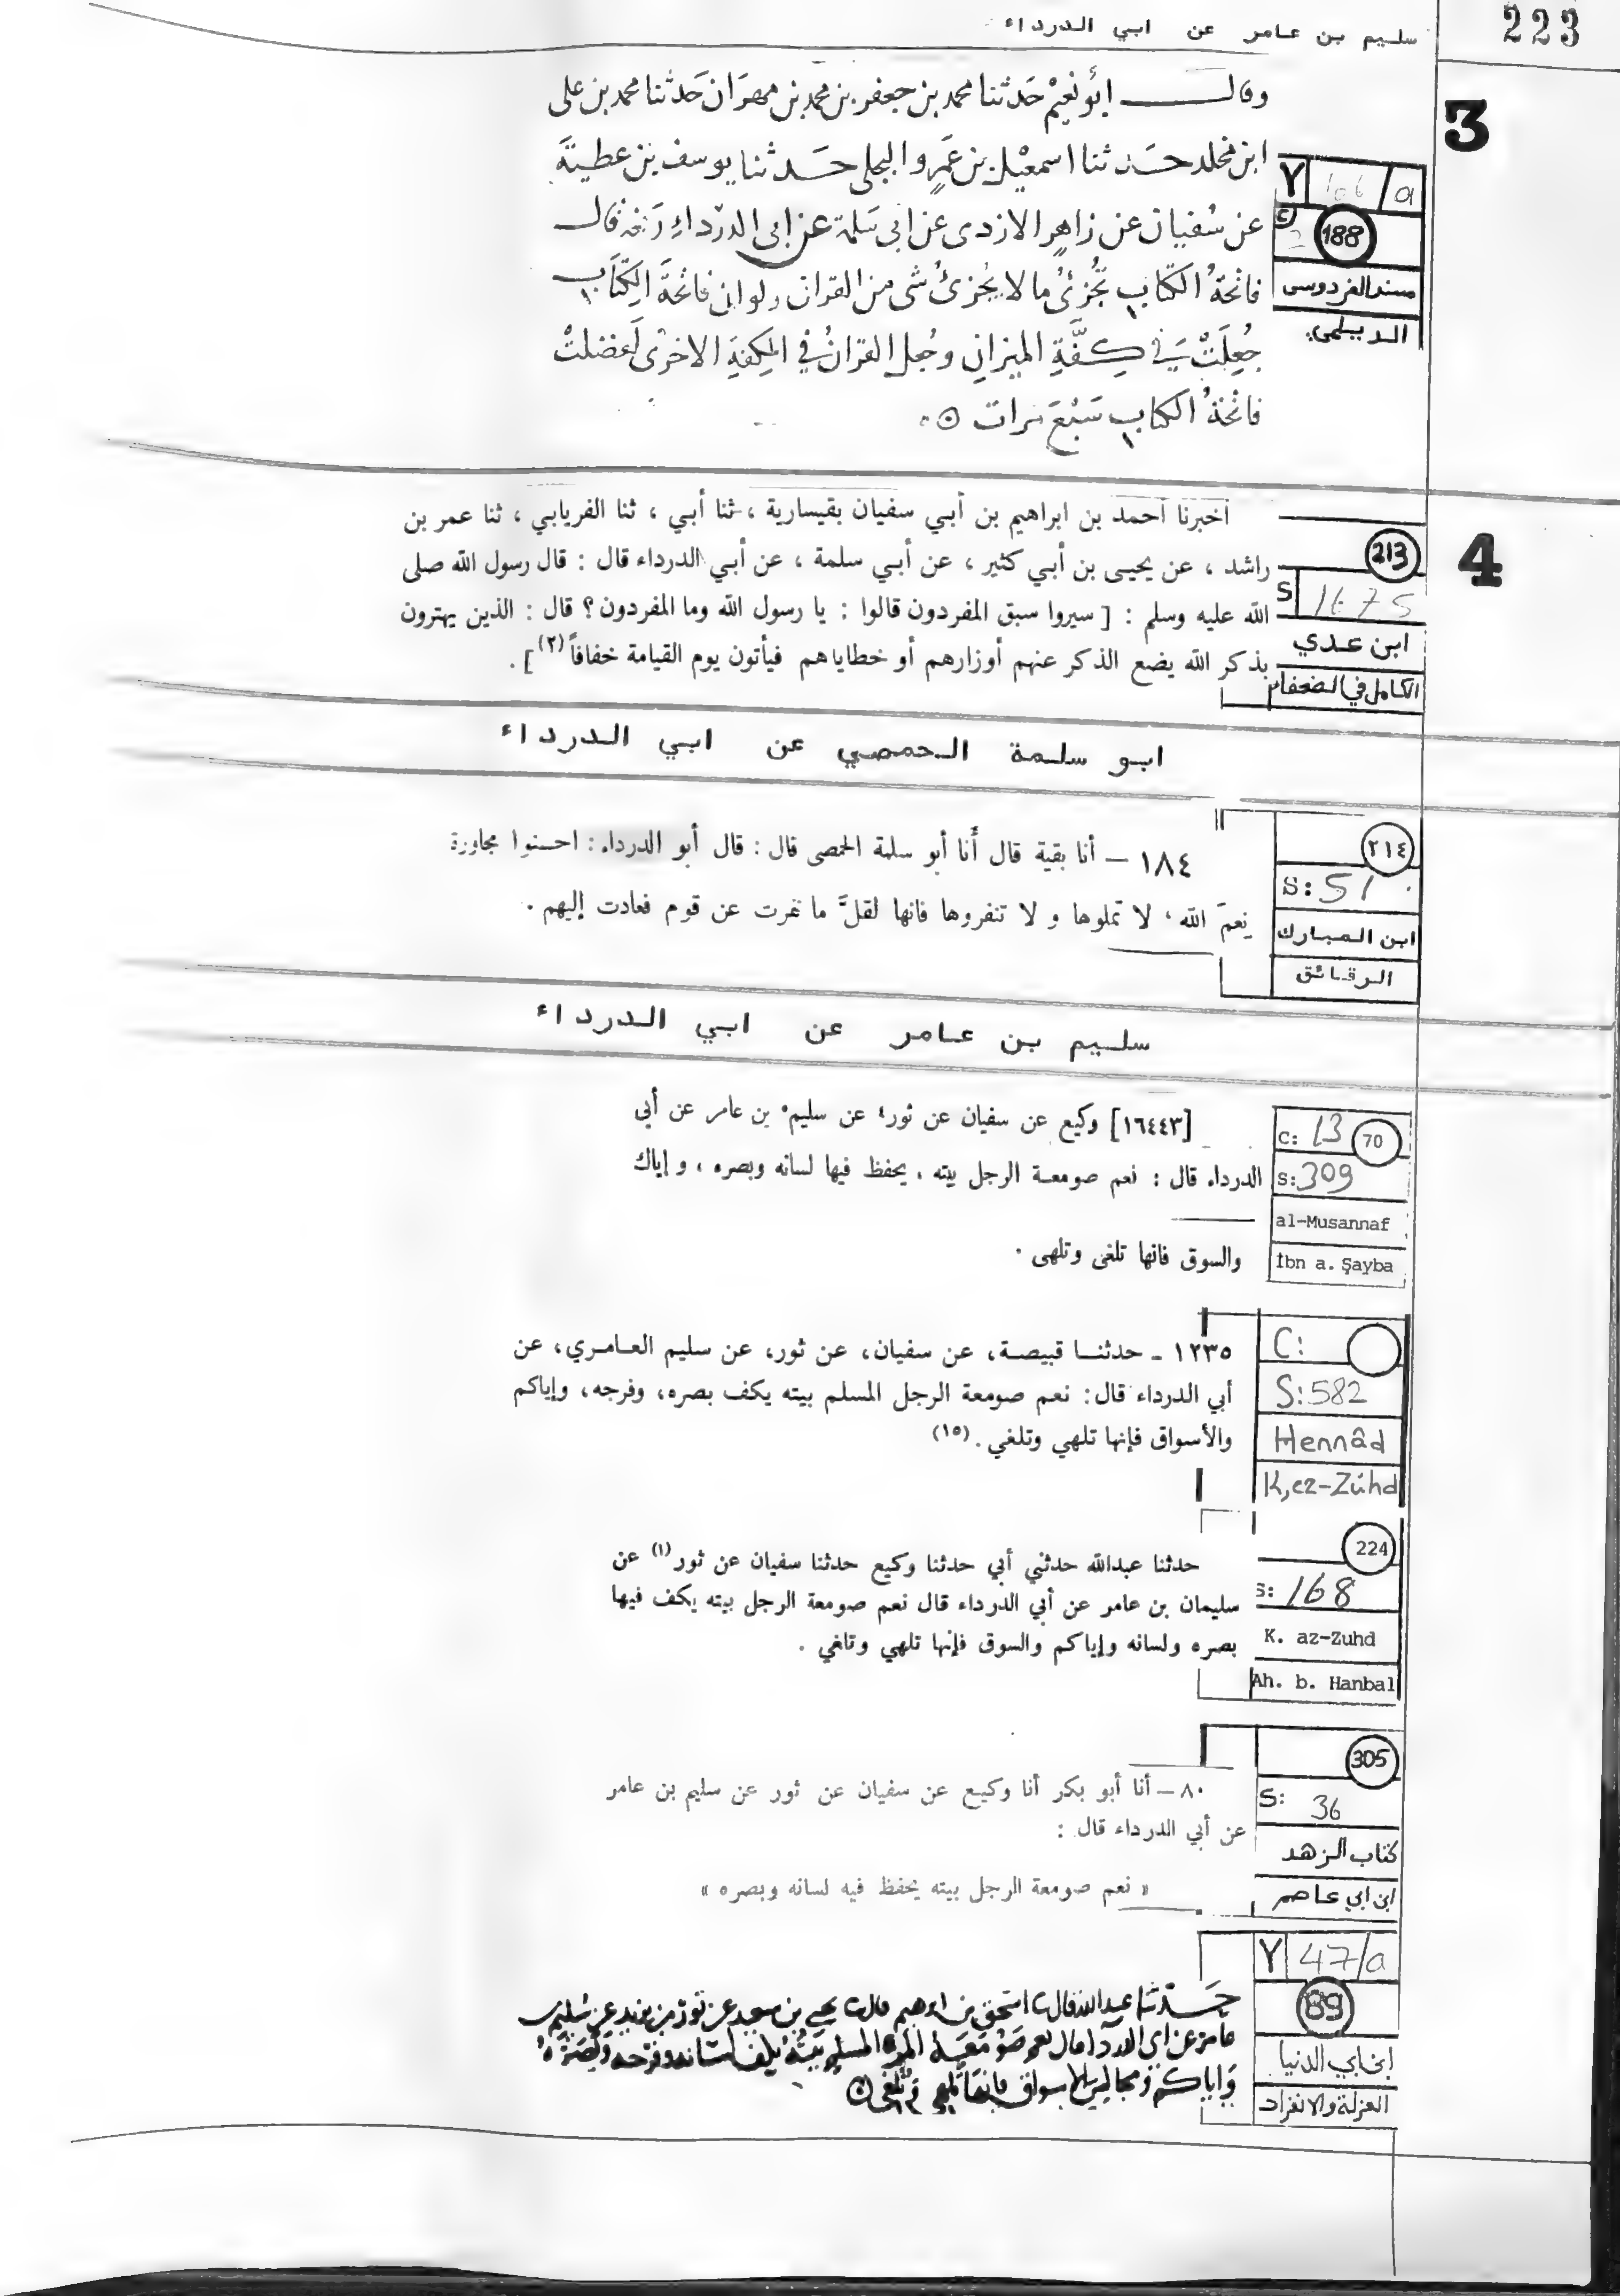 223
سليم بن عامر عن ابي الدرداء
3
وقال ابُو نعيم حَدثنا محمد بن جعفر بن محمد بن مهرَان حَدثنا محمد بن على
ابن مخلد حَدثنا اسمعيل بن عَمرٍو البجلى حَدثنا يوسف بن عطيةَ
عن سُفيان عن زاهرٍ الازدى عن ابى سَلمة عن ابى الدرداءِ قال
فاتحةُ الكتابِ تُجزئُ ما لا يُجزئُ شى من القران ولو ان فاتحةَ الكتابِ
جُعِلَتْ في كِفَّةِ الميزانِ وجُعل القرانُ في الكِفةِ الاخرَى لَفضلتْ
فاتحةُ الكتابِ سَبْعَ مرات
Y /a
188
مسند الفردوس
الديلمي
4
اخبرنا احمد بن ابراهيم بن أبي سفيان بقيسارية ، ثنا أبي ، ثنا الفريابي ، ثنا عمر بن
راشد ، عن يحيى بن أبي كثير ، عن أبي سلمة ، عن أبي الدرداء قال : قال رسول الله صلى
الله عليه وسلم : [ سيروا سبق المفردون قالوا : يا رسول الله وما المفردون ؟ قال : الذين يهترون
بذكر الله يضع الذكر عنهم أوزارهم أو خطاياهم فيأتون يوم القيامة خفافاً (٢) ] .
213
S 1675
ابن عدي
الكامل في الضعفاء
ابو سلمة الحمصي عن ابي الدرداء
١٨٤ — أنا بقية قال أنا أبو سلمة الحمصى قال : قال أبو الدرداء : احسنوا مجاورة
نِعمَ الله ، لا تملوها و لا تنفروها فانها لقلَّ ما نفرت عن قوم فعادت إليهم .
٢١٤
S: 51
ابن المبارك
الرقائق
سليم بن عامر عن ابي الدرداء
[١٦٤٤٣] وكيع عن سفيان عن ثور٤ عن سليم٥ بن عامر عن أبى
الدرداء قال : نعم صومعة الرجل بيته ، يحفظ فيها لسانه وبصره ، و إياك
والسوق فانها تلغى وتلهى .
C: 13 70
S: 309
al-Musannaf
İbn a. Şayba
١٢٣٥ ـ حدثنا قبيصة، عن سفيان، عن ثور، عن سليم العامري، عن
أبي الدرداء قال: نعم صومعة الرجل المسلم بيته يكف بصره، وفرجه، وإياكم
والأسواق فإنها تلهي وتلغي . (١٥)
C:
S: 582
Hennâd
K, ez-Zühd
حدثنا عبدالله حدثني أبي حدثنا وكيع حدثنا سفيان عن ثور (١) عن
سليمان بن عامر عن أبي الدرداء قال نعم صومعة الرجل بيته يكف فيها
بصره ولسانه وإياكم والسوق فإنها تلهي وتلغي .
224
S: 168
K. az-Zuhd
Ah. b. Hanbal
٨٠ — أنا أبو بكر أنا وكيع عن سفيان عن ثور عن سليم بن عامر
عن أبي الدرداء قال :
« نعم صومعة الرجل بيته يحفظ فيه لسانه وبصره »
305
S: 36
كتاب الزهد
ابن ابي عاصم
حَدثنا عبد الله قال اسحق بن ابرهيم قال يحيى بن سعيد عن ثور بن يزيد عن سُليم بن
عامر عن ابى الدرداء قال نعم صَوْمَعَة المرء المسلم بَيْتُهُ يكف لسَانه وفرْجه وَبَصَرَهُ
وَاياكم ومجالس الاسواق فانها تُلهى وتُلغى
Y 47/a
89
ابن ابي الدنيا
العزلة والانفراد